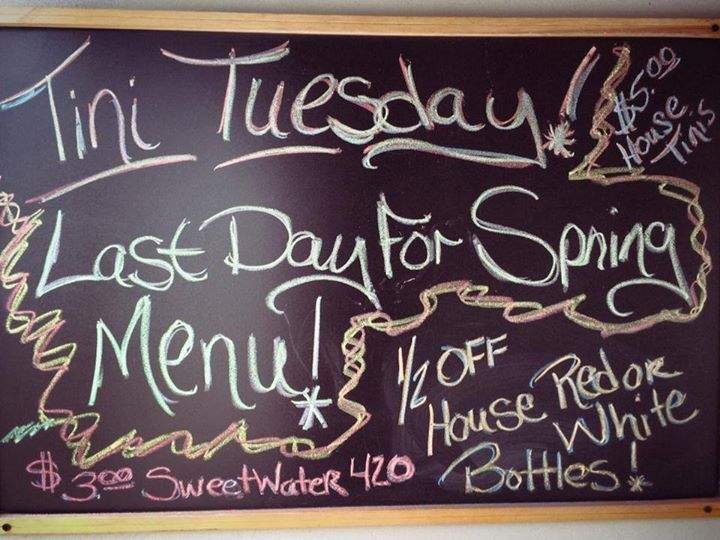 Tini Tuesday!
$5.00
House
Tinis
Last Day For Spring
Menu!
1/2 OFF
House Red or
White
Bottles!
$3.00 SweetWater 420